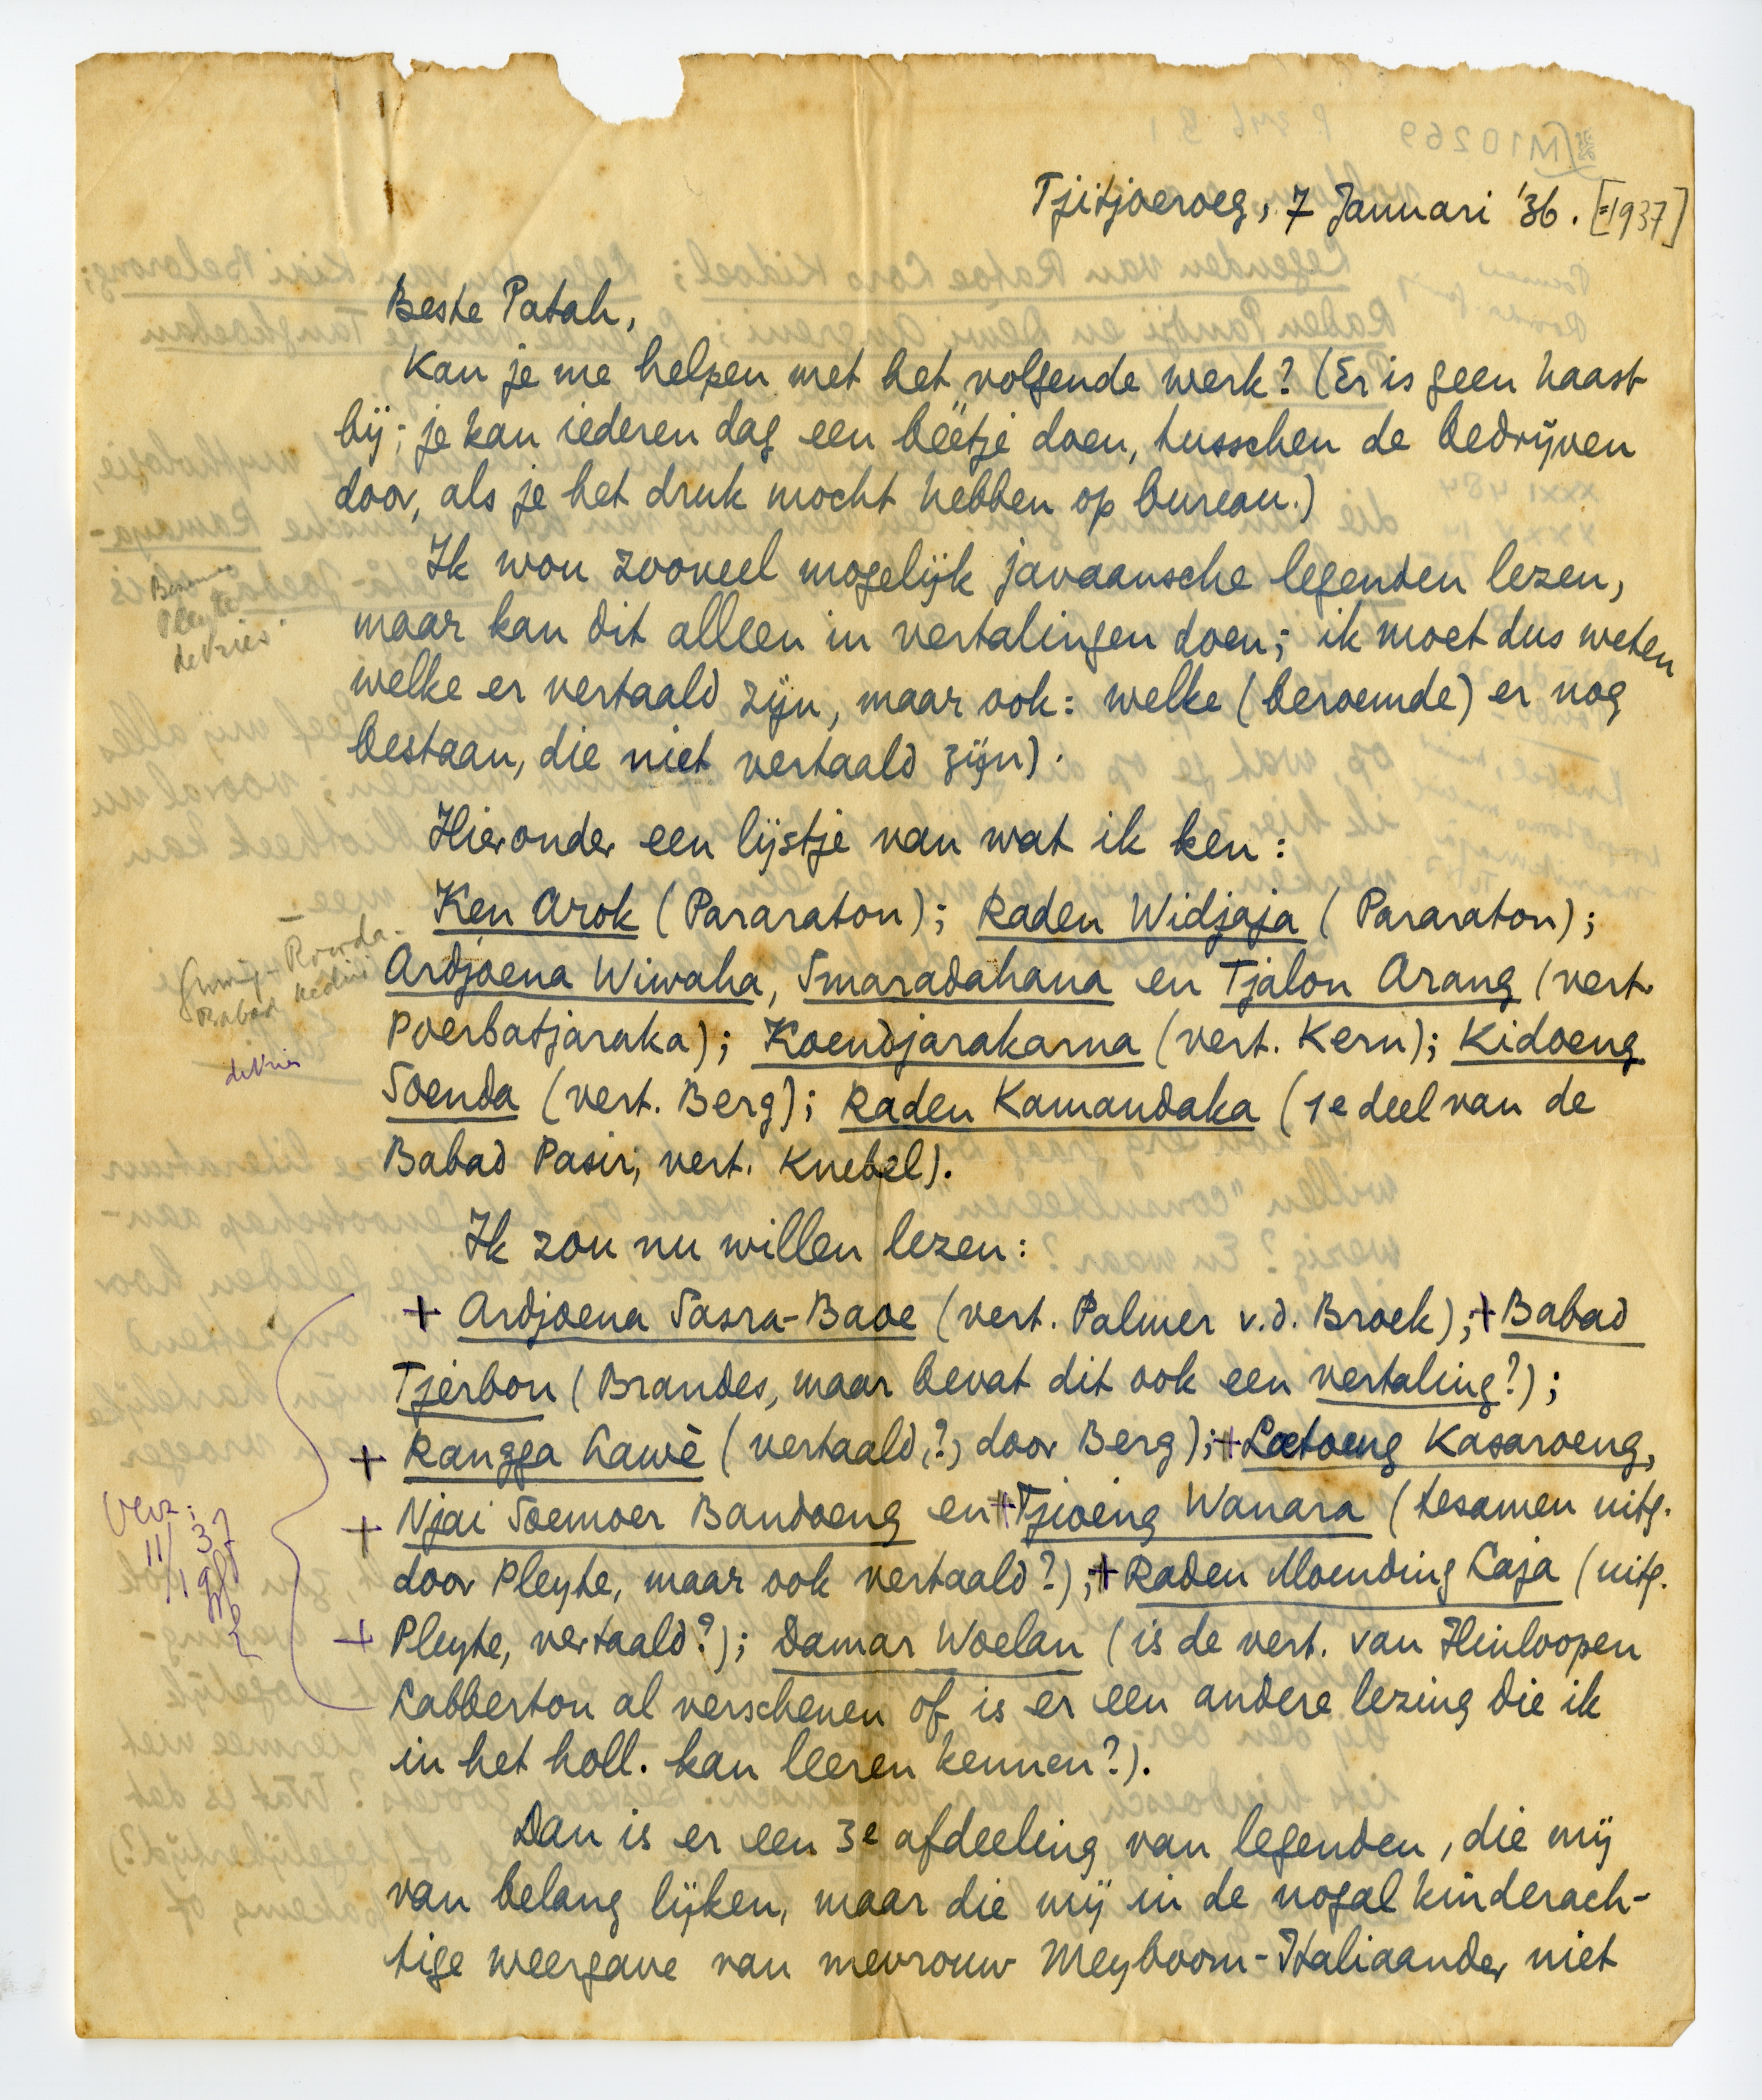 Tjitjoeroeg, 7 Januari '36. [=1937]
Beste Patah,
Kan je me helpen met het volgende werk? (Er is geen haast
bij; je kan iederen dag een beetje doen, tusschen de bedrijven
door, als je het druk mocht hebben op bureau.)
Ik wou zooveel mogelijk javaansche legenden lezen,
maar kan dit alleen in vertalingen doen; ik moet dus weten
welke er vertaald zijn, maar ook: welke (beroemde) er nog
bestaan, die niet vertaald zijn).
Pleyte
de Vries
Hieronder een lijstje van wat ik ken:
Ken Arok (Pararaton); Raden Widjaja (Pararaton);
Ardjoena Wiwaha, Smaradahana en Tjalon Arang (vert.
Poerbatjaraka); Koendjarakarna (vert. Kern); Kidoeng
Soenda (vert. Berg); Raden Kamandaka (1e deel van de
Babad Pasir; vert. Knebel).
Roorda
Babad Kediri
de Vries
Ik zou nu willen lezen:
+ Ardjoena Sasra-Baoe (vert. Palmer v.d. Broek); + Babad
Tjerbon (Brandes, maar bevat dit ook een vertaling?);
+ Rangga Lawè (vertaald, ?, door Berg); + Loetoeng Kasaroeng,
+ Njai Soemoer Bandoeng en + Tjioeng Wanara (tesamen uitg.
door Pleyte, maar ook vertaald?); + Raden Moending Laja (uitg.
+ Pleyte, vertaald?); Damar Woelan (is de vert. van Hinloopen
Labberton al verschenen of is er een andere lezing die ik
in het holl. kan leeren kennen?).
Verz:
11/1 37
Dan is er een 3e afdeeling van legenden, die mij
van belang lijken, maar die mij in de nogal kinderach-
tige weergave van mevrouw Meyboom-Italiaander niet